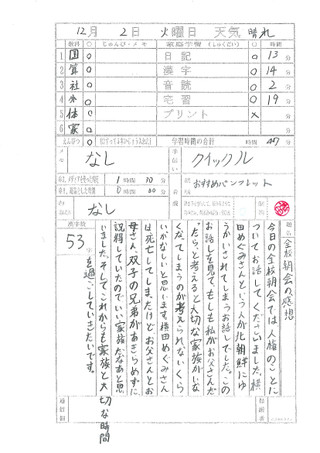 12月 2日 火曜日 天気 晴れ
教科 ○ じゅんび・メモ 家庭学習(しゅくだい) ○ 時間
1 国 ○ 日記 ○ 13 分
2 算 ○ 漢字 ○ 14 分
3 社 ○ 音読 ○ 2 分
4 水 ○ 宅習 ○ 19 分
5 体 ○ プリント ×
6 家 ○
学習時間の合計
なし
クイックル
1 時間 30 分
0 時間 60 分
おすすめパンフレット
なし
53
題名 全校朝会の感想
今日の全校朝会では人権のことに
ついてお話してくださいました。横
田めぐみさんという人が北朝鮮にゆ
うかいされてしまうお話でした。この
お話しを見て、もしも私がお父さんだ
たら、と考えると大切な家族がいな
くなってしまうのが考えられないくら
いかなしいと思います。横田めぐみさん
は死亡してしまったけどお父さんとお
母さん、双子の兄弟があきらめずに
説得していたのでいい家族だなあと思
いました。そしてこれからも家族と大切な時間
を過ごしていきたいです。